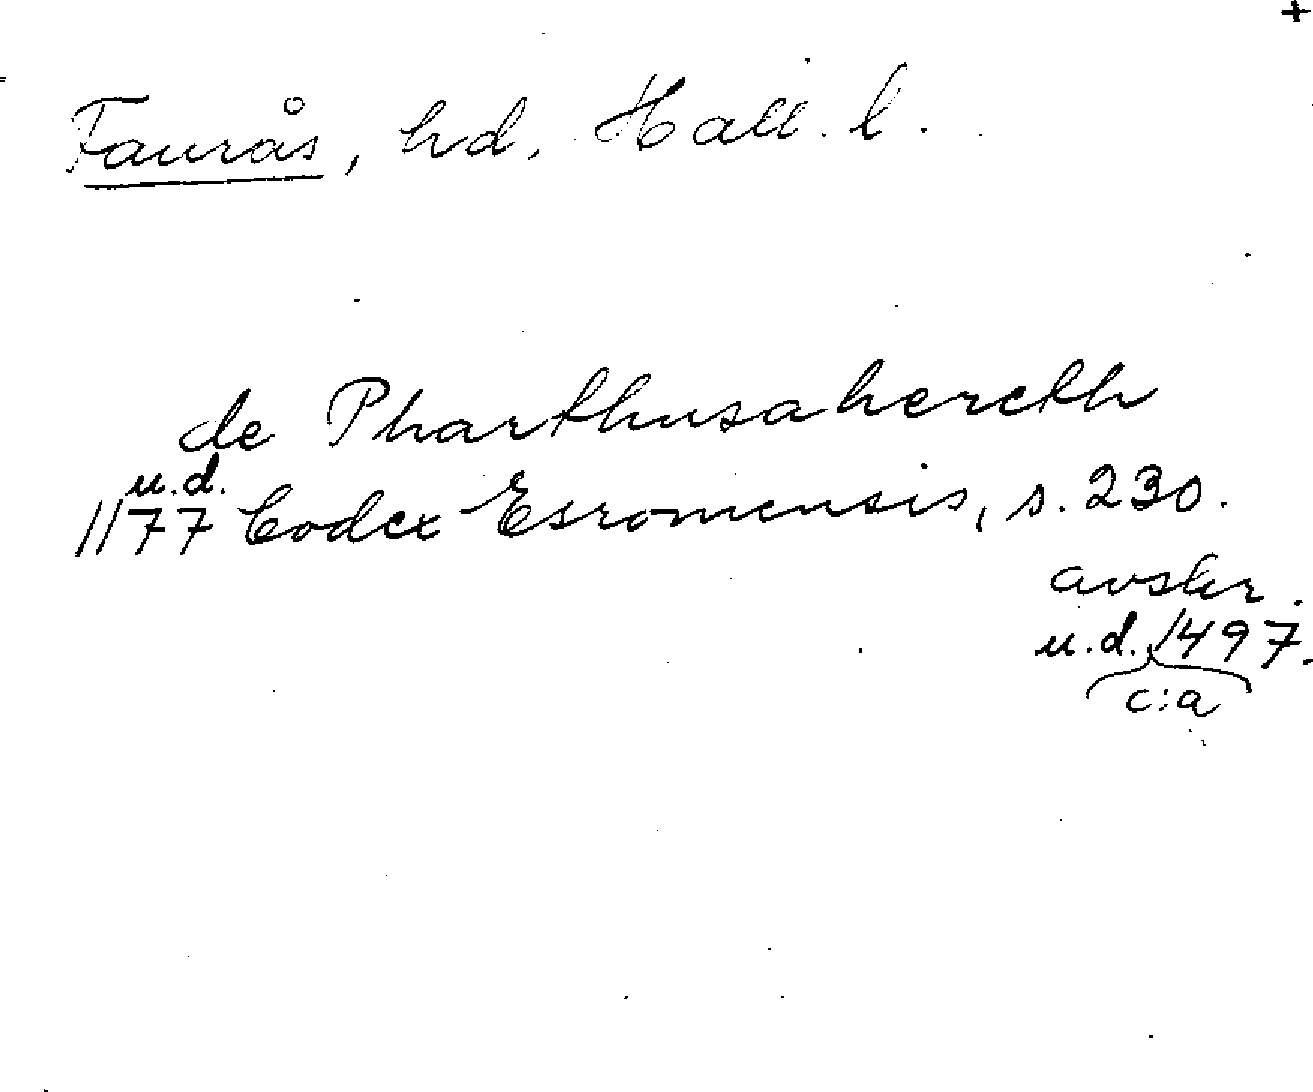 +
Faurås, hd, Hall. l.
de Pharthusahereth
u.d.
1177 Codex Esromensis, s. 230.
avskr.
u.d. 1497.
c:a